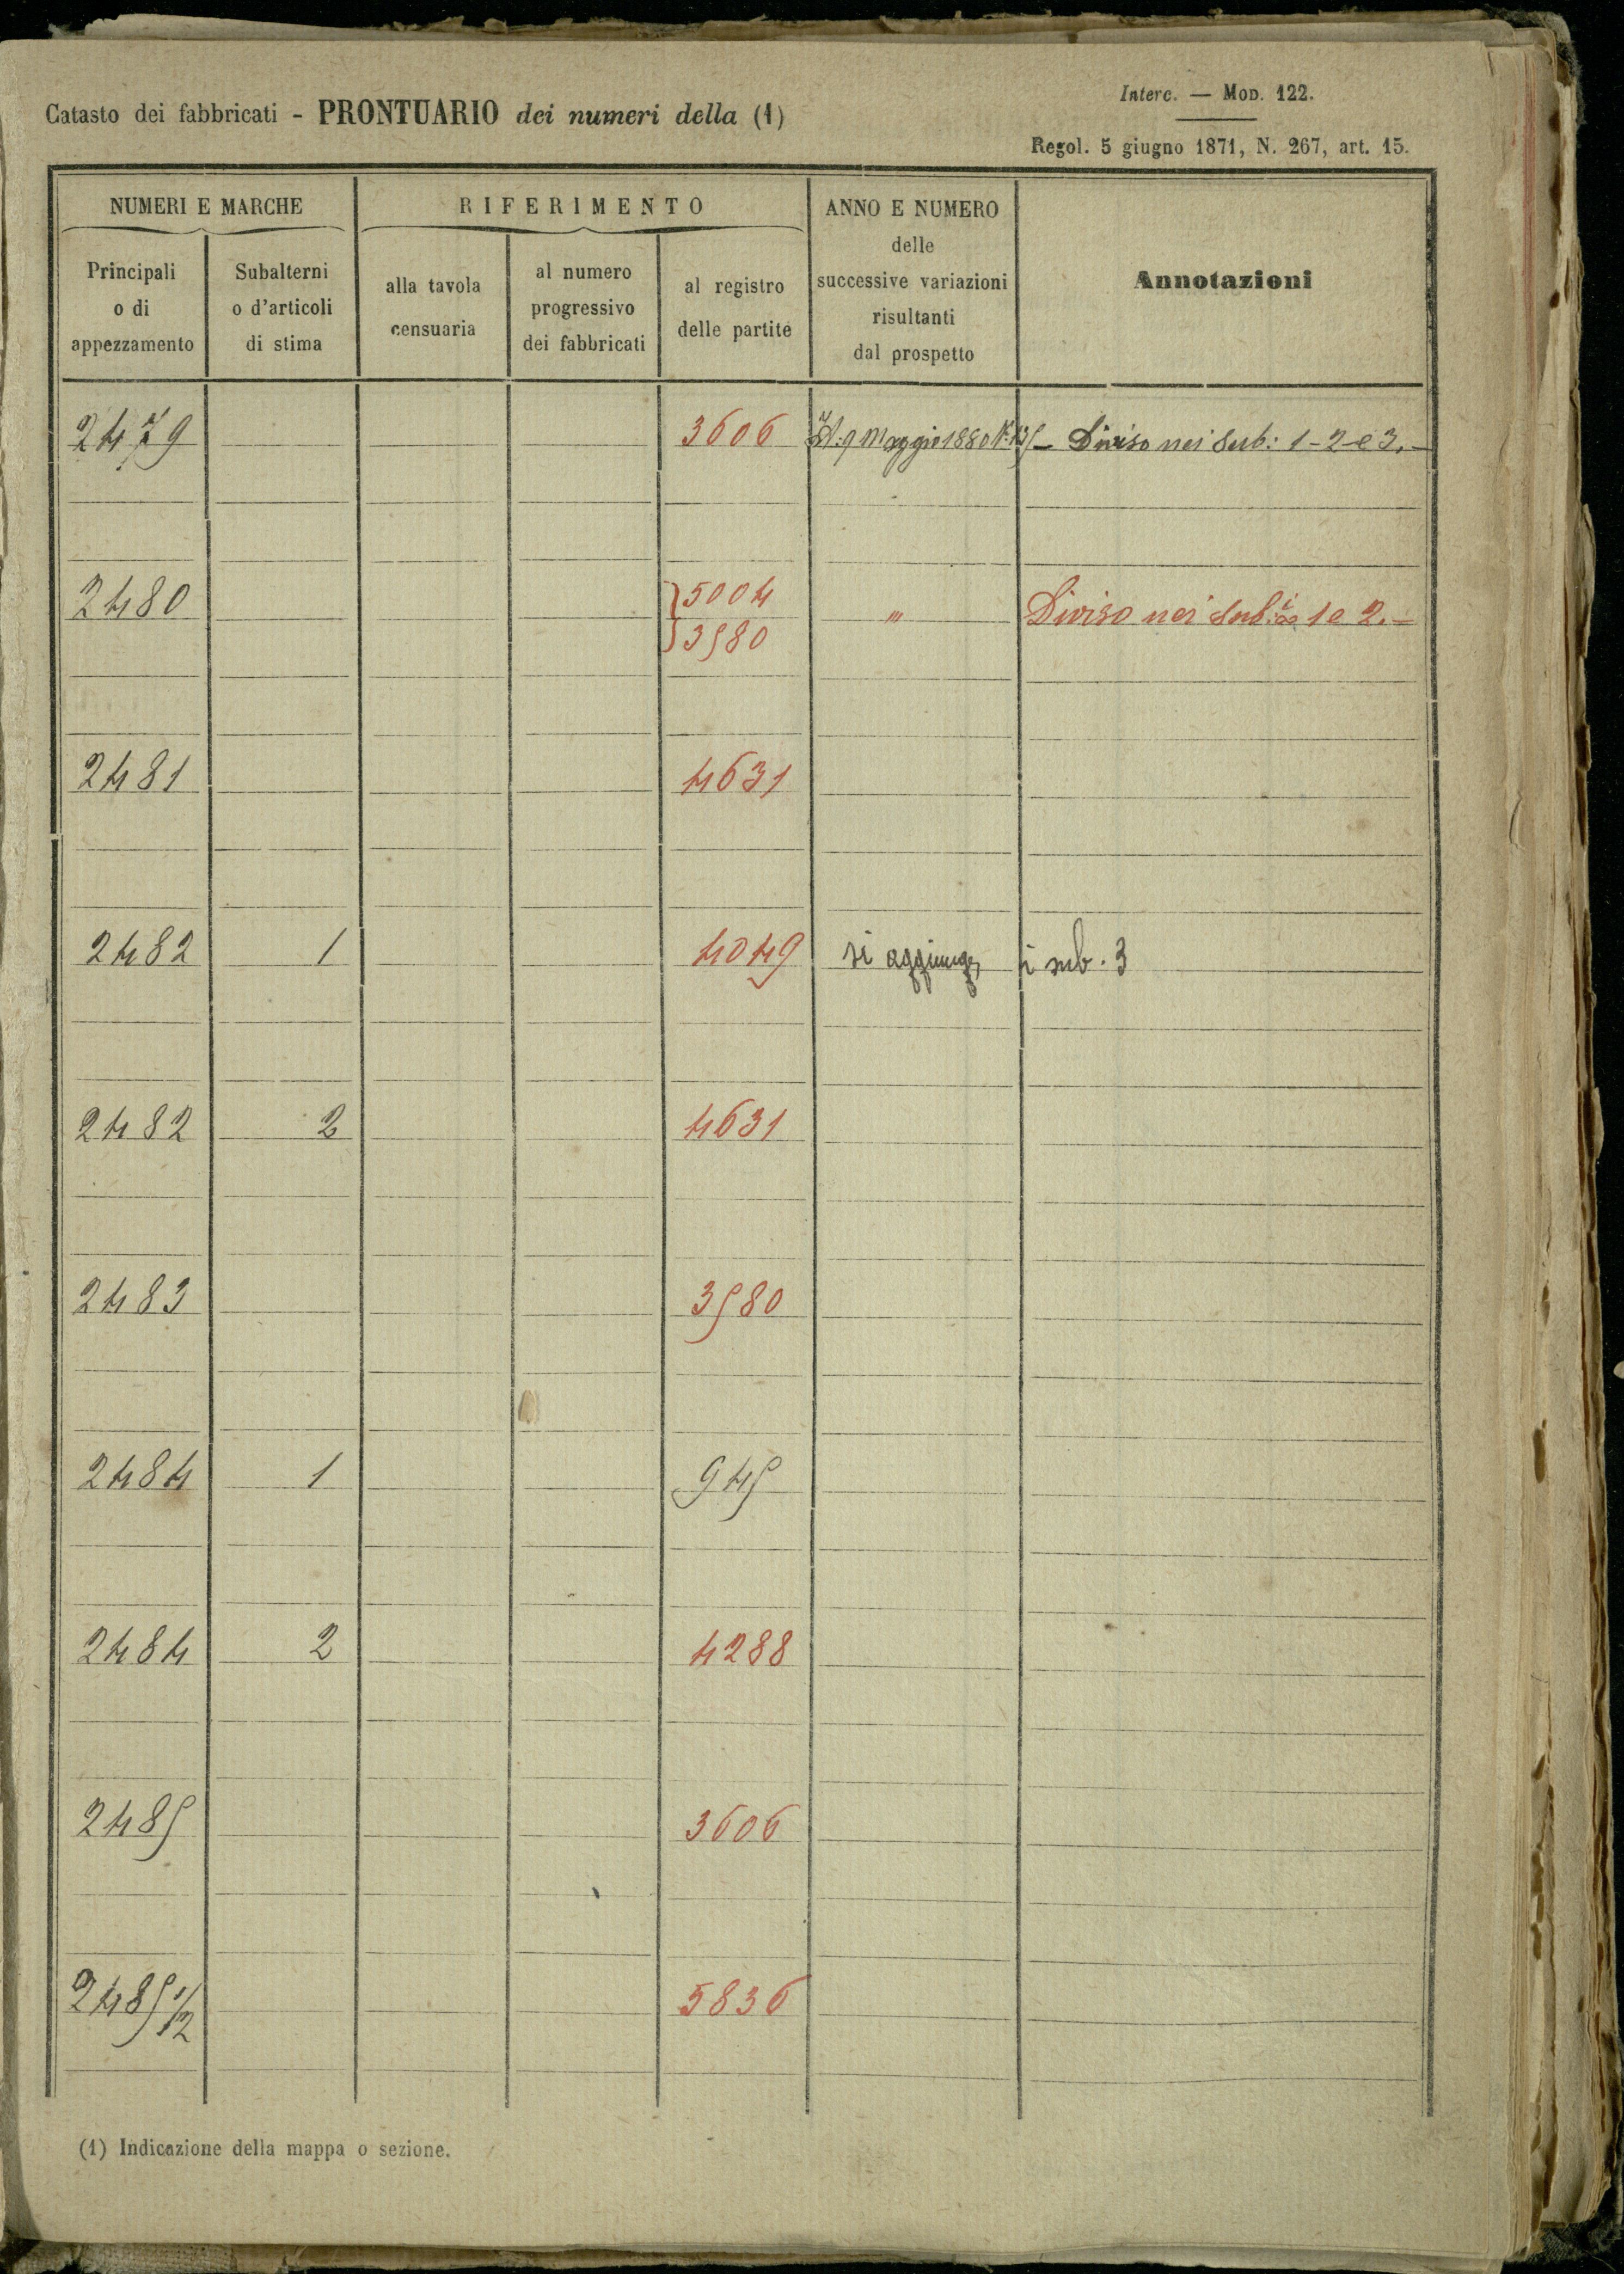 Catasto dei fabbricati - PRONTUARIO dei numeri della (1)
Interc. — MOD. 122.
Regol. 5 giugno 1871, N. 267, art. 15.
NUMERI E MARCHE
RIFERIMENTO
ANNO E NUMERO
delle
successive variazioni
risultanti
dal prospetto
Annotazioni
Principali
o di
appezzamento
Subalterni
o d'articoli
di stima
alla tavola
censuaria
al numero
progressivo
dei fabbricati
al registro
delle partite
2479 3606 9 Maggio 1880 — Diviso nei Sub: 1-2 e 3.—
2480 5004 " Diviso nei Sub: 1 e 2.—
3580
2481 4631
2482 1 4049 si aggiunge, i sub. 3
2482 2 4631
2483 3580
2484 1 945
2484 2 4288
2485 3606
2485 1/2 5836
(1) Indicazione della mappa o sezione.